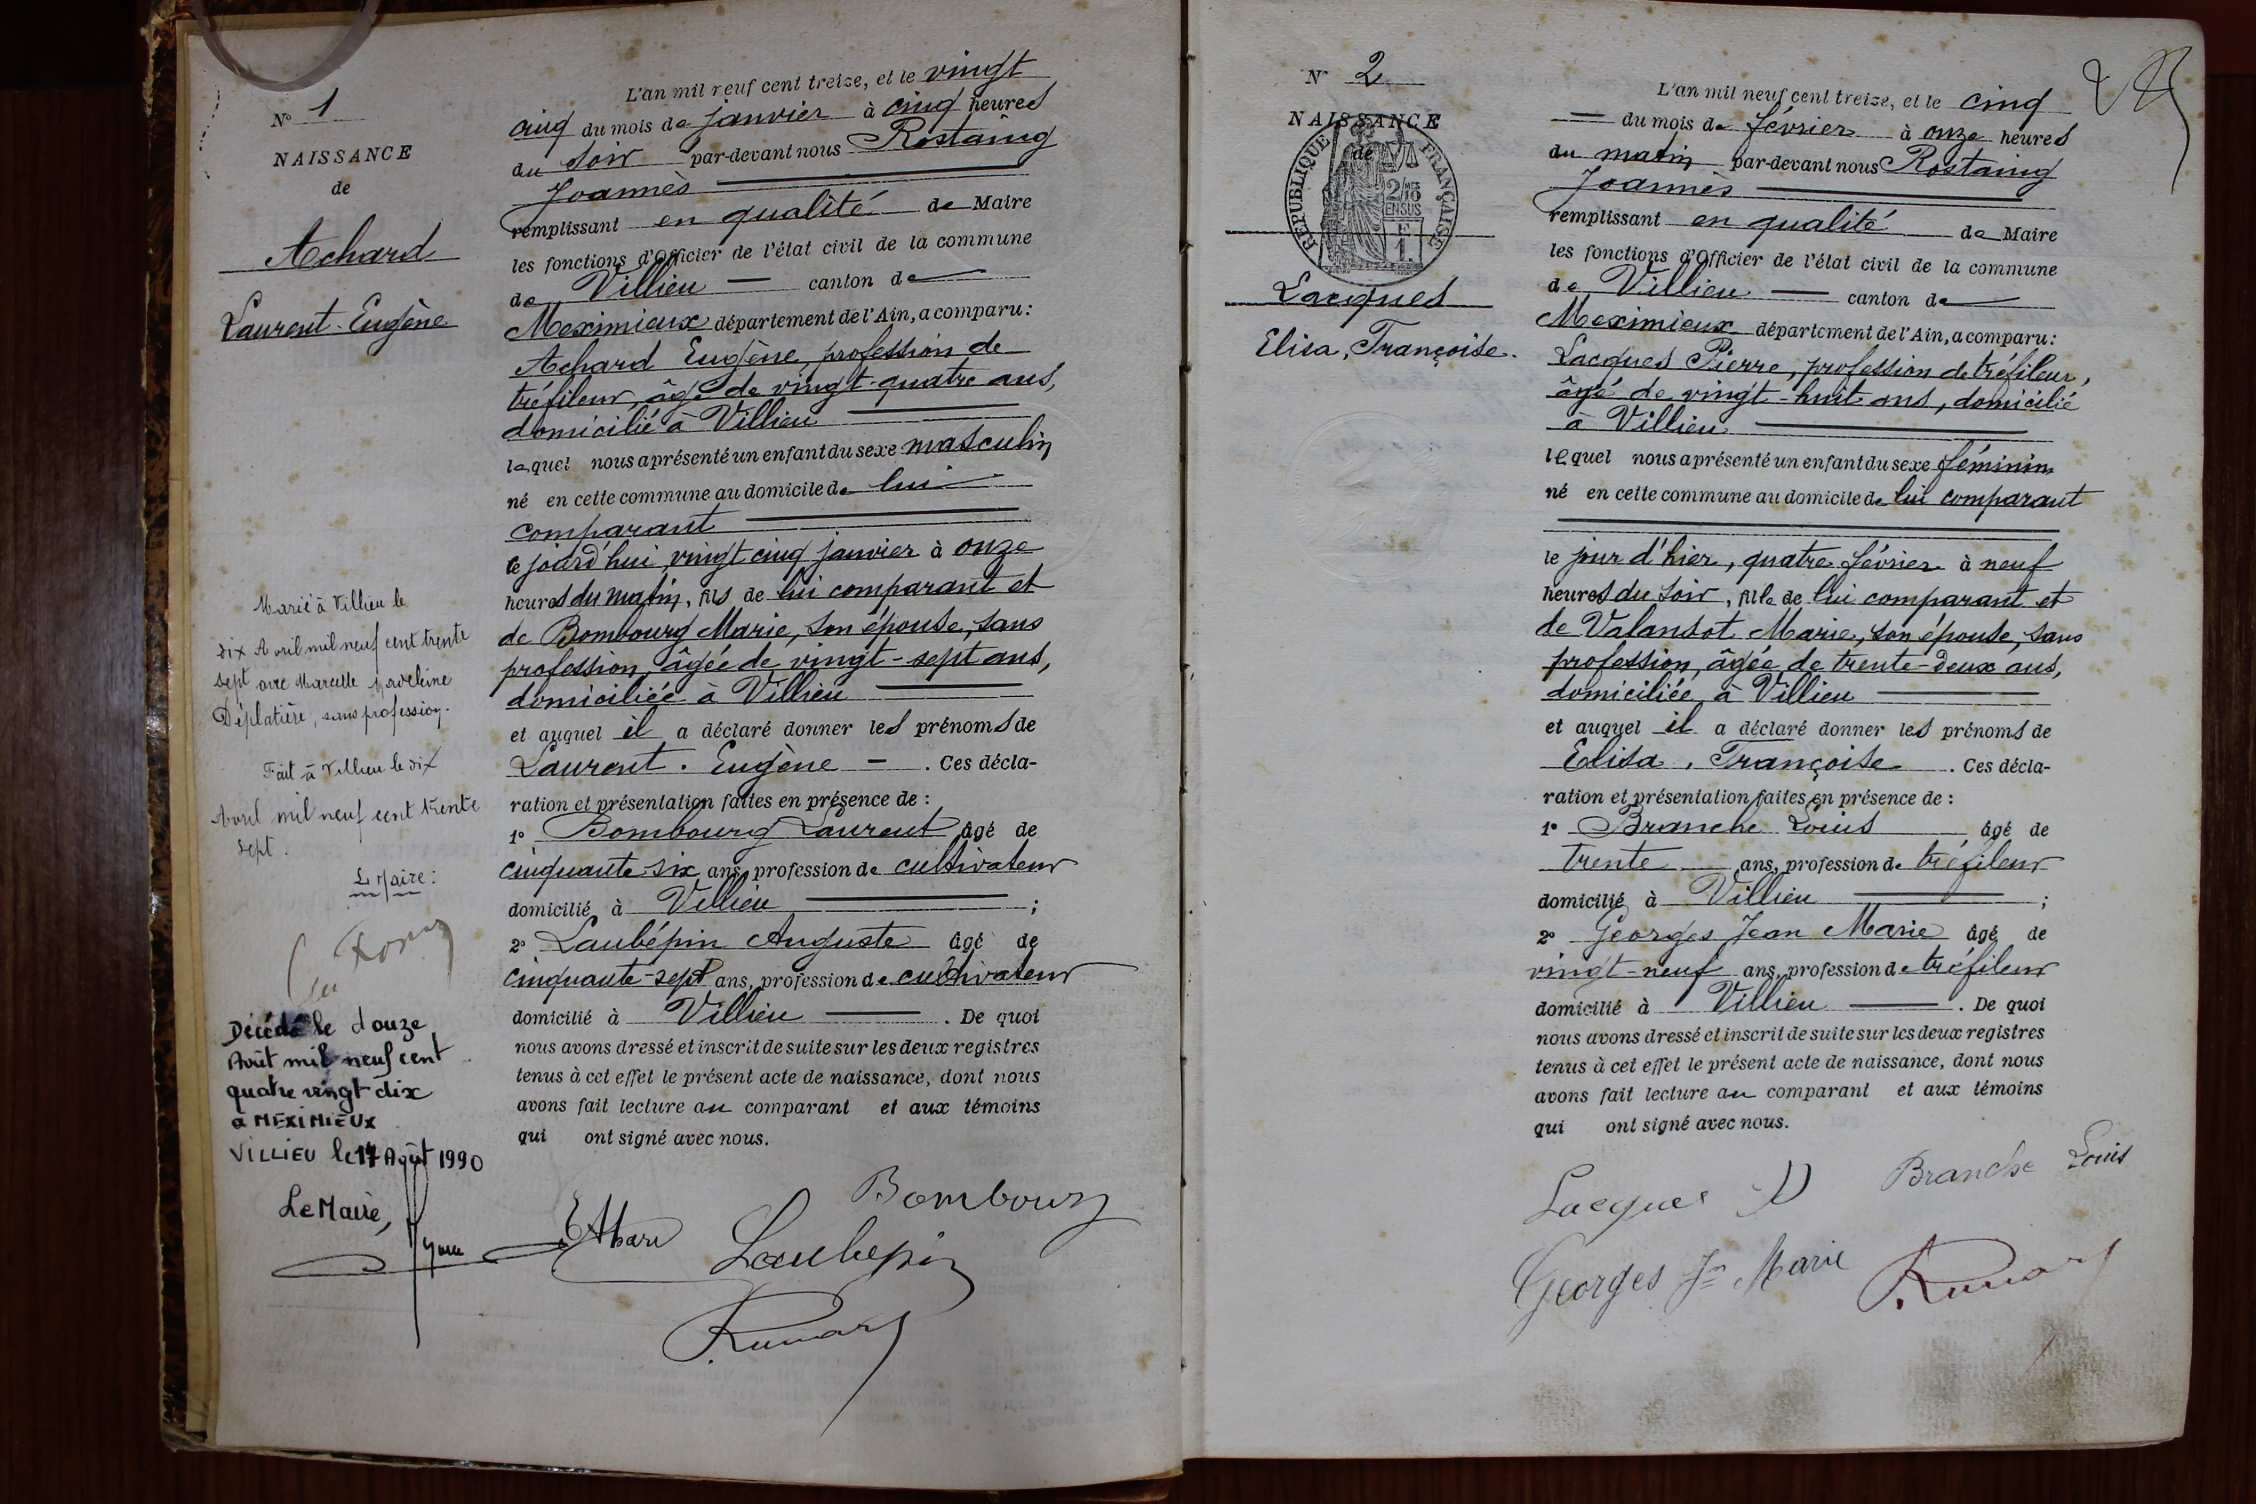 N° 1
NAISSANCE
de
Achard
Laurent-Eugène
Marié à Villieu le
dix Avril mil neuf cent trente
sept avec Marcelle
Déplatière, sans profession.
Fait à Villieu le dix
Avril mil neuf cent trente
sept.
Le Maire:
Décédé le douze
Août mil neuf cent
quatre vingt dix
à MEXIMIEUX
VILLIEU le 17 Août 1990
Le Maire,
L'an mil neuf cent treize, et le vingt
cinq du mois de janvier à cinq heures
du soir par-devant nous Rostaing
Joannès
remplissant en qualité de Maire
les fonctions d'Officier de l'état civil de la commune
de Villieu canton de
Meximieux département de l'Ain, a comparu:
Achard Eugène, profession de
tréfileur, âgé de vingt-quatre ans,
domicilié à Villieu
lequel nous a présenté un enfant du sexe masculin
né en cette commune au domicile de lui
comparant
ce jourd'hui, vingt cinq janvier à onze
heures du matin, fils de lui comparant et
de Bombourg Marie, son épouse, sans
profession, âgée de vingt-sept ans,
domiciliée à Villieu
et auquel il a déclaré donner les prénoms de
Laurent. Eugène - . Ces décla-
ration et présentation faites en présence de :
1° Bombourg Laurent âgé de
cinquante-six ans, profession de cultivateur
domicilié à Villieu ;
2° Laubépin Auguste âgé de
cinquante-sept ans, profession de cultivateur
domicilié à Villieu . De quoi
nous avons dressé et inscrit de suite sur les deux registres
tenus à cet effet le présent acte de naissance, dont nous
avons fait lecture au comparant et aux témoins
qui ont signé avec nous.
Bombourg
EAhard Laubepin
N° 2
NAISSANCE
de
REPUBLIQUE FRANÇAISE
2/10
EN SUS
1.
Lacques
Elisa, Françoise.
L'an mil neuf cent treize, et le cinq
du mois de février à onze heures
du matin par-devant nous Rostaing
Joannès
remplissant en qualité de Maire
les fonctions d'Officier de l'état civil de la commune
de Villieu canton de
Meximieux département de l'Ain, a comparu:
Lacques Pierre, profession de tréfileur,
âgé de vingt-huit ans, domicilié
à Villieu
lequel nous a présenté un enfant du sexe féminin
né en cette commune au domicile de lui comparant
le jour d'hier, quatre février à neuf
heures du soir, fille de lui comparant et
de Valansot Marie, son épouse, sans
profession, âgée de trente-deux ans,
domiciliée à Villieu
et auquel il a déclaré donner les prénoms de
Elisa, Françoise . Ces décla-
ration et présentation faites en présence de :
1° Branche Louis âgé de
trente ans, profession de tréfileur
domicilié à Villieu ;
2° Georges Jean Marie âgé de
vingt-neuf ans, profession de tréfileur
domicilié à Villieu . De quoi
nous avons dressé et inscrit de suite sur les deux registres
tenus à cet effet le présent acte de naissance, dont nous
avons fait lecture au comparant et aux témoins
qui ont signé avec nous.
Lacques P Branche Louis
Georges Jn Marie